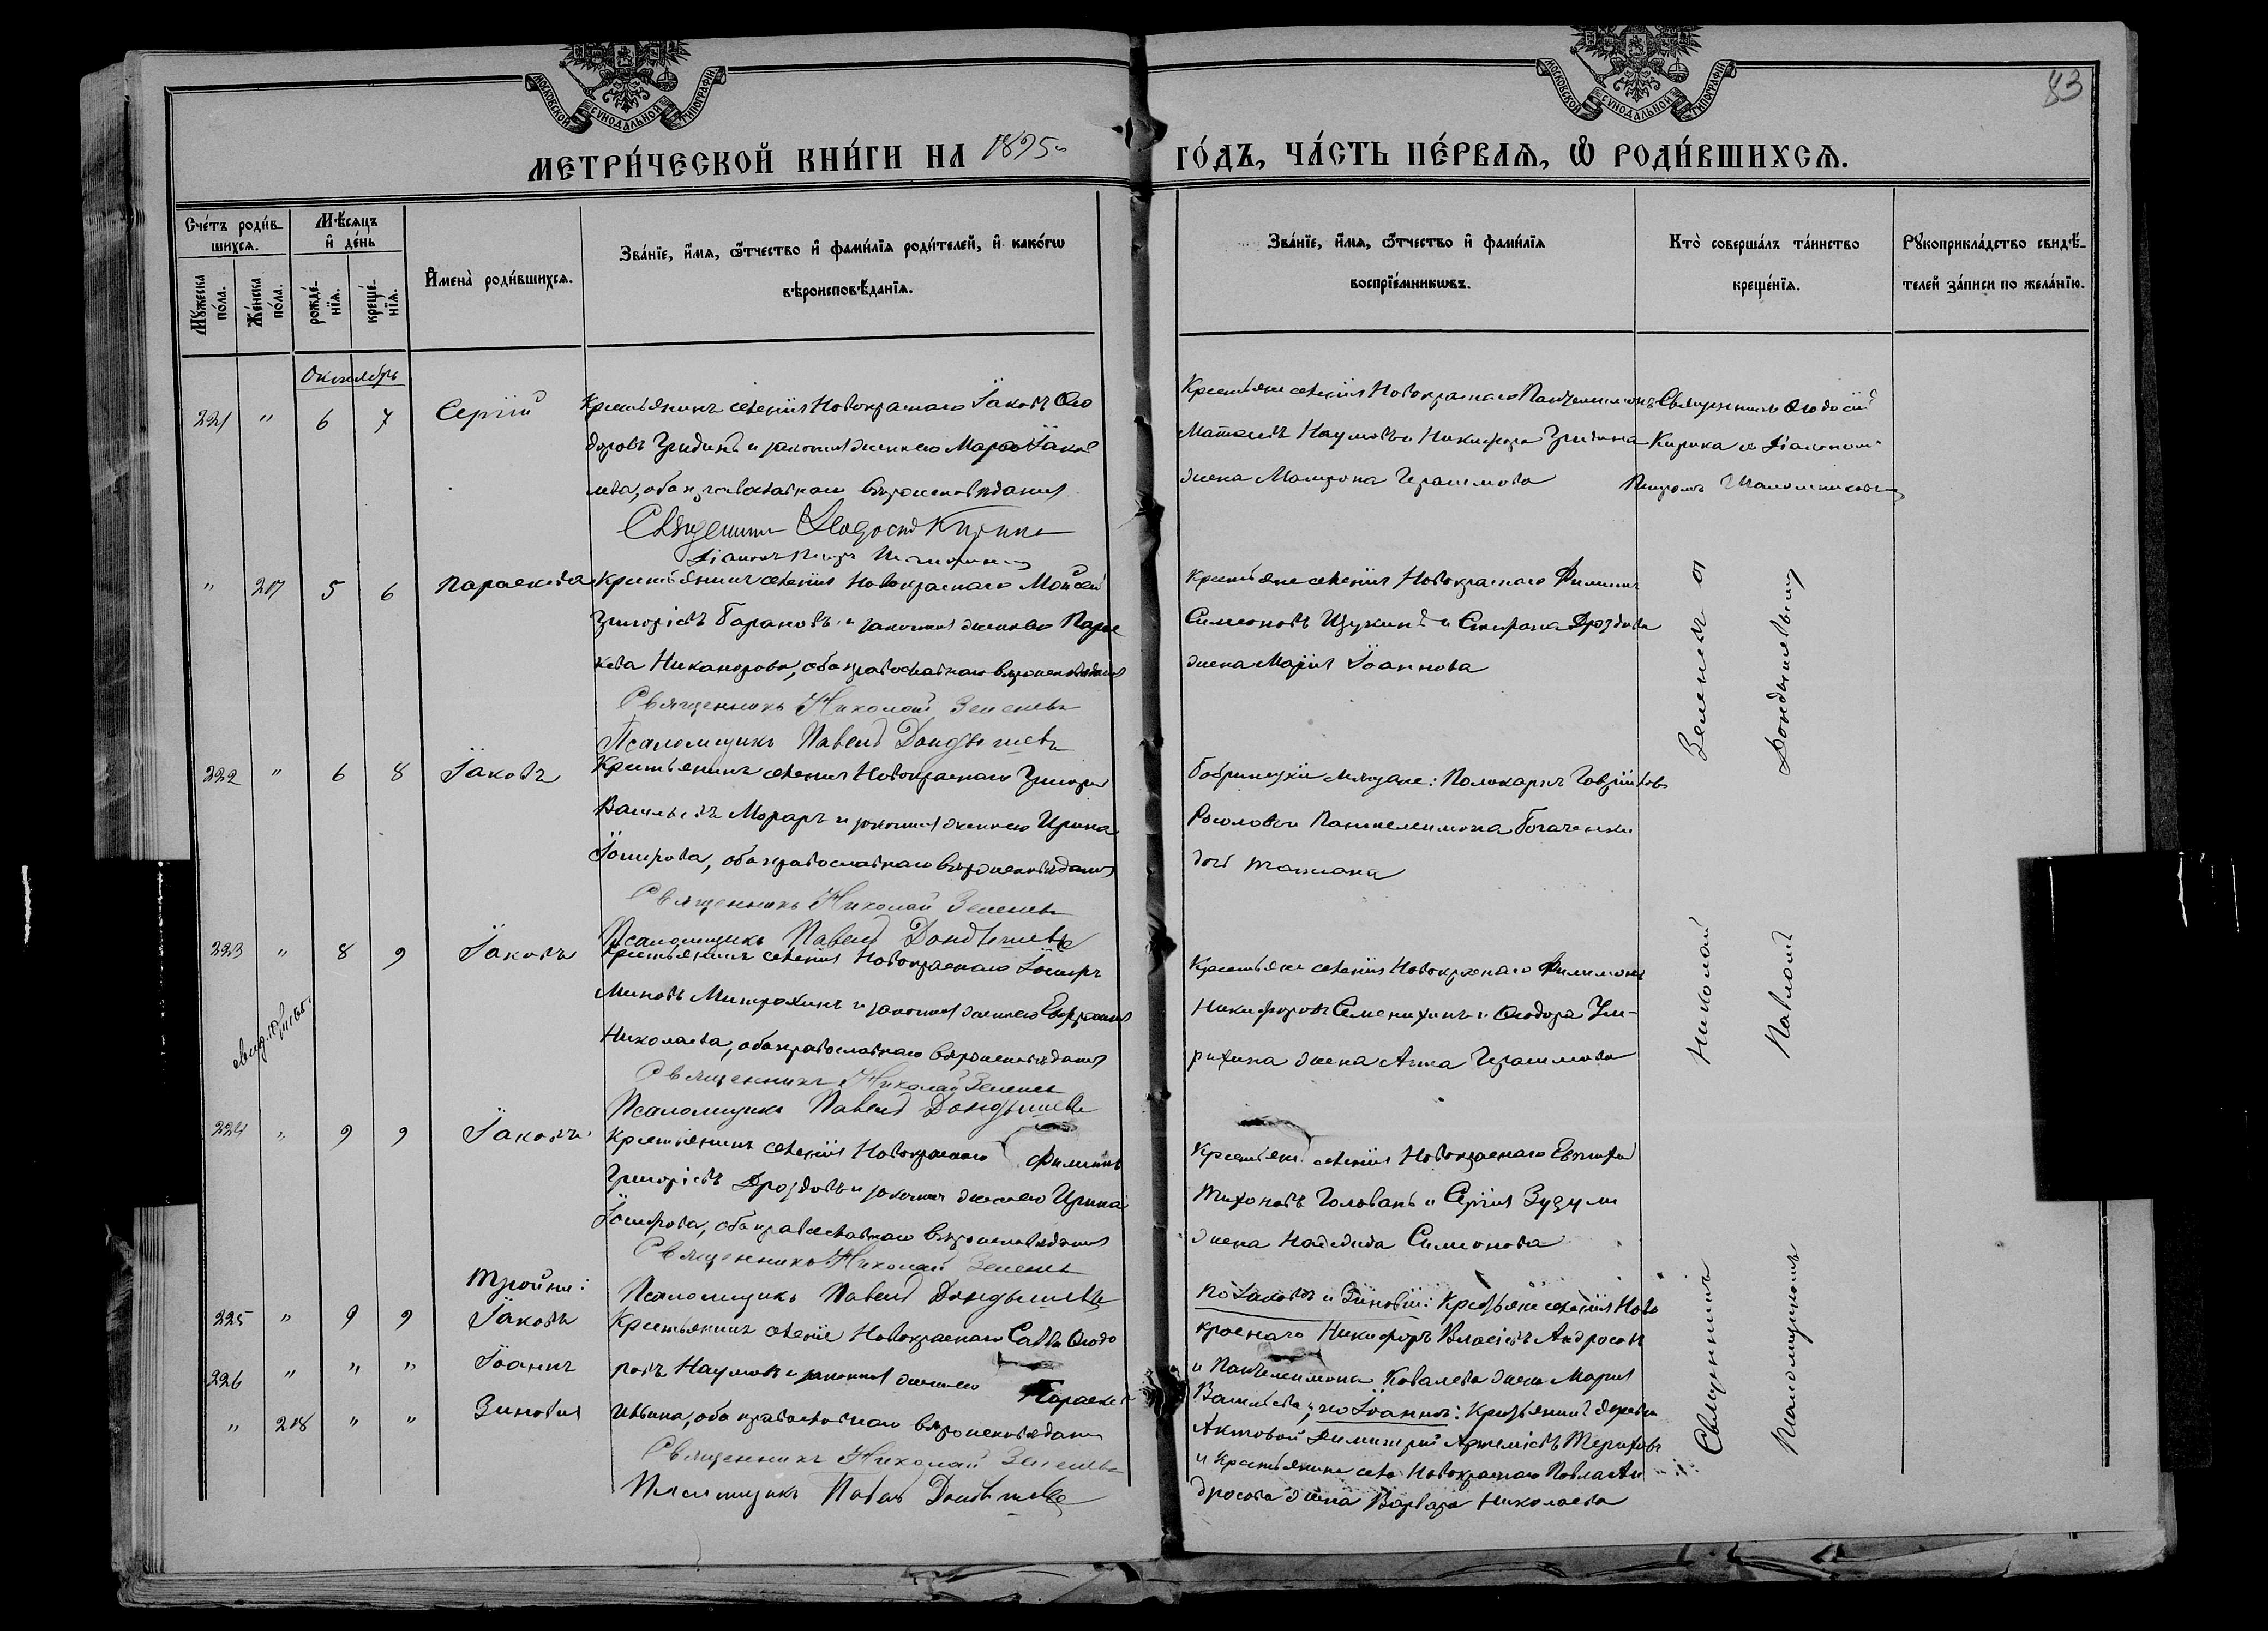 МОСКОВСКОЙ СУНОДАЛЬНОЙ ТИПОГРАФІИ
МОСКОВСКОЙ СУНОДАЛЬНОЙ ТИПОГРАФІИ
83
МЕТРИ́ЧЕСКОЙ КНИ́ГИ НА 1895
ГО́ДЪ, ЧА́СТЬ ПЕ́РВАѦ, Ѡ РОДИ́ВШИХСѦ.
Сче́тъ роди́в-
шихсѧ.
Мꙋ́жеска
по́ла.
Же́нска
по́ла.
Мѣ́сѧцъ
и҆ де́нь
рожде́-
нїѧ.
креще́-
нїѧ.
И҆мена̀ роди́вшихсѧ.
Зва́нїе, и҆́мѧ, ѻ҆́тчество и҆ фами́лїѧ роди́телей, и҆ како́гѡ
вѣроисповѣ́данїѧ.
Зва́нїе, и҆́мѧ, ѻ҆́тчество и҆ фами́лїѧ
воспрїе́мникѡвъ.
Кто̀ соверша́лъ та́инство
креще́нїѧ.
Рꙋкоприкла́дство свидѣ́-
телей за́писи по жела́нїю.
Октябрь
221 " 6 7 Сергій
Крестьянинъ селенія Новокраснаго Іаковъ Ѳео
доровъ Гридинъ и законная жена его Марѳа Іаков
лева, оба православнаго вѣроисповѣданія
Священникъ Ѳеодосій Кирика
Діаконъ Петръ
Крестьяне селенія Новокраснаго Пантелеимонъ
Наумовъ и Никифора Гридина
жена Матрона Герасимова
Священникъ Ѳеодосій
Кирика съ Діакономъ
Петромъ
" 217 5 6 Параскева
Крестьянинъ селенія Новокраснаго Мойсей
Григоріевъ Барановъ и законная жена его Парас
кева Никанорова, оба православнаго вѣроисповѣданія
Священникъ Николай Зеленевъ
Псаломщикъ Павелъ Дондышевъ
Крестьяне селенія Новокраснаго Филиппъ
Симеоновъ Щукинъ и Спиридона Дроздова
жена Марія Іоаннова
222 " 6 8 Іаковъ
Крестьянинъ селенія Новокраснаго Григорій
Васильевъ Мораръ и законная жена его Ирина
Іосифова, оба православнаго вѣроисповѣданія
Священникъ Николай Зеленевъ
Псаломщикъ Павелъ Дондышевъ
Бобринецкіе мѣщане: Поликарпъ Гавріиловъ
и Пантелеимона Богаченки
дочь Татіана
223 " 8 9 Іаковъ
Крестьянинъ селенія Новокраснаго Іосифъ
Миновъ Митрохинъ и законная жена его Евфросинія
Николаева, оба православнаго вѣроисповѣданія
Священникъ Николай Зеленевъ
Псаломщикъ Павелъ Дондышевъ
Крестьяне селенія Новокраснаго Филимонъ
Никифоровъ Семенихинъ и Ѳеодора Гри-
жена Анна Герасимова
224 " 9 9 Іаковъ
Крестьянинъ селенія Новокраснаго Филиппъ
Григоріевъ Дроздовъ и законная жена его Ирина
Іосифова, оба православнаго вѣроисповѣданія
Священникъ Николай Зеленевъ
Псаломщикъ Павелъ Дондышевъ
Крестьяне селенія Новокраснаго Евѳимій
Тихоновъ Голованъ и Сергія Зузули
жена Надежда Симеонова
Тройни:
225 " 9 9 Іаковъ
226 " " " Іоаннъ
" 218 " " Зиновія
Крестьянинъ селенія Новокраснаго Савва Ѳеодо
ровъ Наумовъ и законная жена его Параскева
оба православнаго вѣроисповѣданія
Священникъ Николай Зеленевъ
Псаломщикъ Павелъ Дондышевъ
по Іаковѣ и Зиновіи: Крестьяне селенія Ново
краснаго Никифоръ Власіевъ Андросовъ
и Пантелеимона Ковалева жена Марія
Васильева; по Іоаннѣ: Крестьянинъ деревни
Актовой Димитрій Артеміевъ Тереховъ
и Крестьянина села Новокраснаго Павла Ан
дросова жена Варвара Николаева
Священникъ Николай Зеленевъ съ
Псаломщикомъ Павломъ Дондышевымъ